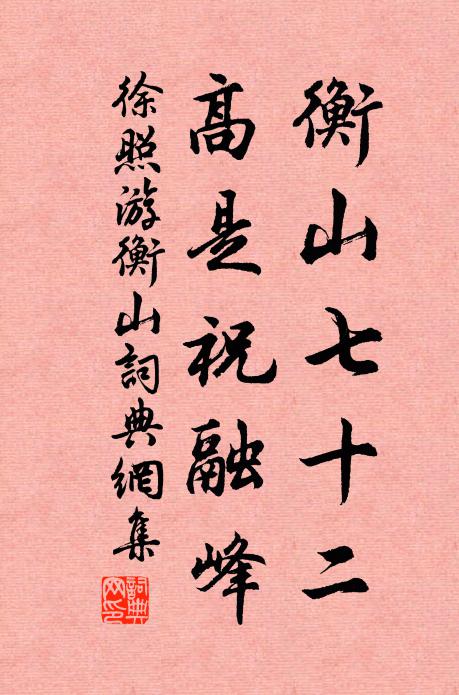 衡山七十二
髙是祝融峰
徐照游衡山詞典網集
詞典網印